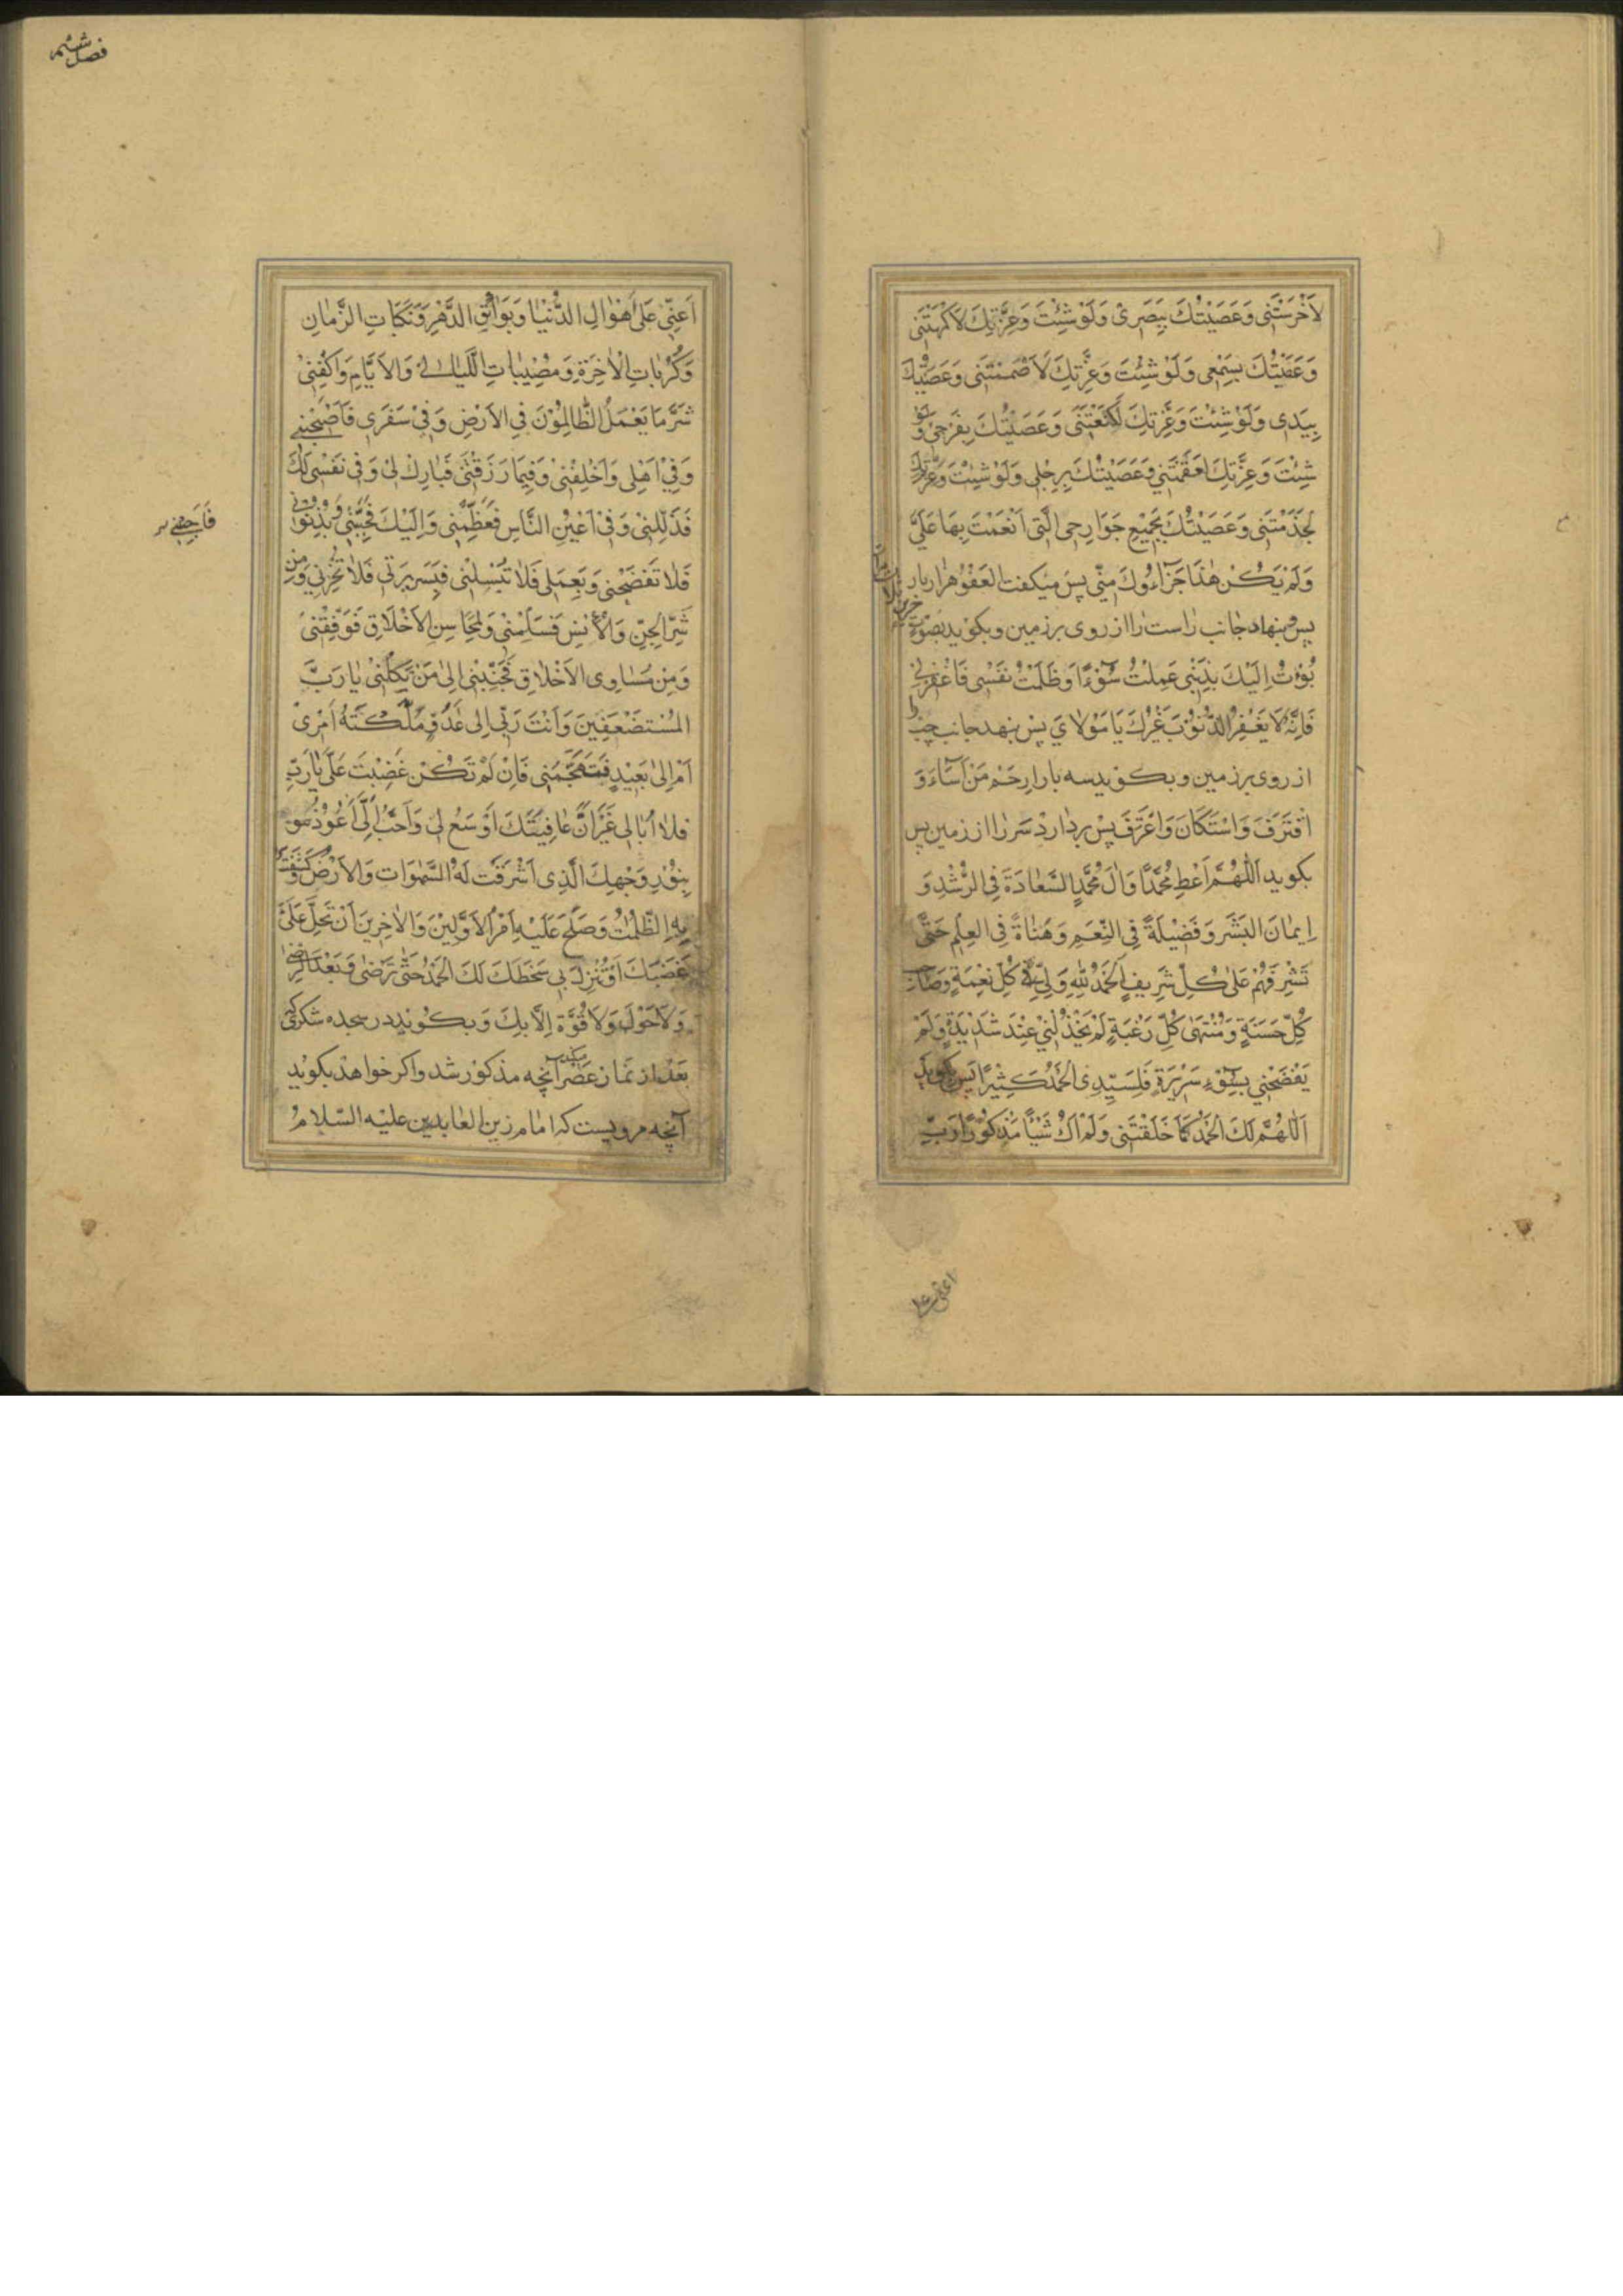 لَأَخْرَسْتَنِی وَعَصَیْتُكَ بِبَصَرِی وَلَوْ شِئْتَ وَعِزَّتِكَ لَأَكْمَهْتَنِی
وَعَصَیْتُكَ بِسَمْعِی وَلَوْ شِئْتَ وَعِزَّتِكَ لَأَصْمَمْتَنِی وَعَصَیْتُكَ
بِیَدِی وَلَوْ شِئْتَ وَعِزَّتِكَ لَكَنَّعْتَنِی وَعَصَیْتُكَ بِفَرْجِی وَلَوْ
شِئْتَ وَعِزَّتِكَ لَعَقَمْتَنِی وَعَصَیْتُكَ بِرِجْلِی وَلَوْ شِئْتَ وَعِزَّتِكَ
لَجَذَمْتَنِی وَعَصَیْتُكَ بِجَمِیْعِ جَوَارِحِی الَّتِی اَنْعَمْتَ بِهَا عَلَیَّ
وَلَمْ یَكُنْ هٰذَا جَزَاءُوكَ مِنِّی پس میكفت العَفْوُ هزار بار
پس بنهاد جانب راست را از روی برزمین و بكوید بصوت حزین
بُؤْتُ اِلَیْكَ بِذَنْبِی عَمِلْتُ سُوْءًا وَظَلَمْتُ نَفْسِی فَاغْفِرْلِی
فَاِنَّهُ لَا یَغْفِرُ الذُّنُوْبَ غَیْرُكَ یَا مَوْلَایَ پس بنهد جانب چپ را
از روی برزمین و بكوید سه بار اِرحَمْ مَنْ اَسَآءَ وَ
اقْتَرَفَ وَاسْتَكَانَ وَاعْتَرَفَ پس بردارد سر را از زمین پس
بكوید اَللّٰهُمَّ اَعْطِ مُحَمَّدًا وَاٰلَ مُحَمَّدٍ السَّعَادَةَ فِی الرُّشْدِ وَ
اِیمَانَ الیَسَرِ وَفَضِیْلَةً فِی النِّعَمِ وَهَنَاءَةً فِی العِلْمِ حَتَّى
تُشَرِّفَهُمْ عَلَى كُلِّ شَرِیفٍ اَلحَمْدُ لِلّٰهِ وَلِیِّ كُلِّ نِعْمَةٍ وَصَاحِبِ
كُلِّ حَسَنَةٍ وَمُنْتَهَى كُلِّ رَغْبَةٍ لَمْ یَخْذُلْنِی عِنْدَ شَدِیْدَةٍ وَلَمْ
یَفْضَحْنِی بِسُوْءِ سَرِیْرَةٍ فَلِسَیِّدِی الحَمْدُ كَثِیْرًا پس بكوید
اَللّٰهُمَّ لَكَ الحَمْدُ كَمَا خَلَقْتَنِی وَلَمْ اَكُ شَیْئًا مَذْكُوْرًا رَبِّ
اعنی علی
فصل ششم
اَعِنِّی عَلَى اَهْوَالِ الدُّنْیَا وَبَوَائِقِ الدَّهْرِ وَنَكَبَاتِ الزَّمَانِ
وَكُرُبَاتِ الْاٰخِرَةِ وَمُصِیْبَاتِ اللَّیَالِی وَالْاَیَّامِ وَاكْفِنِی
شَرَّ مَا یَعْمَلُ الظَّالِمُوْنَ فِی الْاَرْضِ وَفِی سَفَرِی فَاَصْحِبْنِی
وَفِی اَهْلِی وَاَخْلِفْنِی وَفِیمَا رَزَقْتَنِی فَبَارِكْ لِی وَفِی نَفْسِی لَكَ
فَذَلِّلْنِی وَفِی اَعْیُنِ النَّاسِ فَعَظِّمْنِی وَاِلَیْكَ فَحَبِّبْنِی وَبِذُنُوبِی
فَلَا تَفْضَحْنِی وَبِعَمَلِی فَلَا تُبْسِلْنِی فَبِسَرِیرَتِی فَلَا تُخْزِنِی وَمِنْ
شَرِّ الجِنِّ وَالْاِنْسِ فَسَلِّمْنِی وَلِمَحَاسِنِ الْاَخْلَاقِ فَوَفِّقْنِی
وَمِنْ مَسَاوِی الْاَخْلَاقِ فَجَنِّبْنِی اِلٰى مَنْ تَكِلُنِی یَا رَبَّ
المُسْتَضْعَفِینَ وَاَنْتَ رَبِّی اِلٰى عَدُوٍّ مَلَّكْتَهُ اَمْرِی
اَمْ اِلٰى بَعِیْدٍ فَیَتَجَهَّمَنِی فَاِنْ لَمْ تَكُنْ غَضِبْتَ عَلَیَّ یَا رَبِّ
فَلَا اُبَالِی غَیْرَ اَنَّ عَافِیَتَكَ اَوْسَعُ لِی وَاَحَبُّ اِلَیَّ اَعُوْذُ
بِنُوْرِ وَجْهِكَ الَّذِی اَشْرَقَتْ لَهُ السَّمٰوَاتُ وَالْاَرْضُ وَكَشَفْتَ
بِهِ الظُّلُمَاتِ وَصَلُحَ عَلَیْهِ اَمْرُ الْاَوَّلِیْنَ وَالْاٰخِرِینَ اَنْ تَحِلَّ عَلَیَّ
غَضَبَكَ اَوْ تُنْزِلَ بِی سَخَطَكَ لَكَ الحَمْدُ حَتَّى تَرْضٰى وَبَعْدَ الرِّضٰى
وَلَا حَوْلَ وَلَا قُوَّةَ اِلَّا بِكَ وَبكوید در سجده شكر كه
بعد از نماز عصر میكند آنچه مذكور شد و اكر خواهد بكوید
آنچه مرویست كه امام زین العابدین علیه السّلام